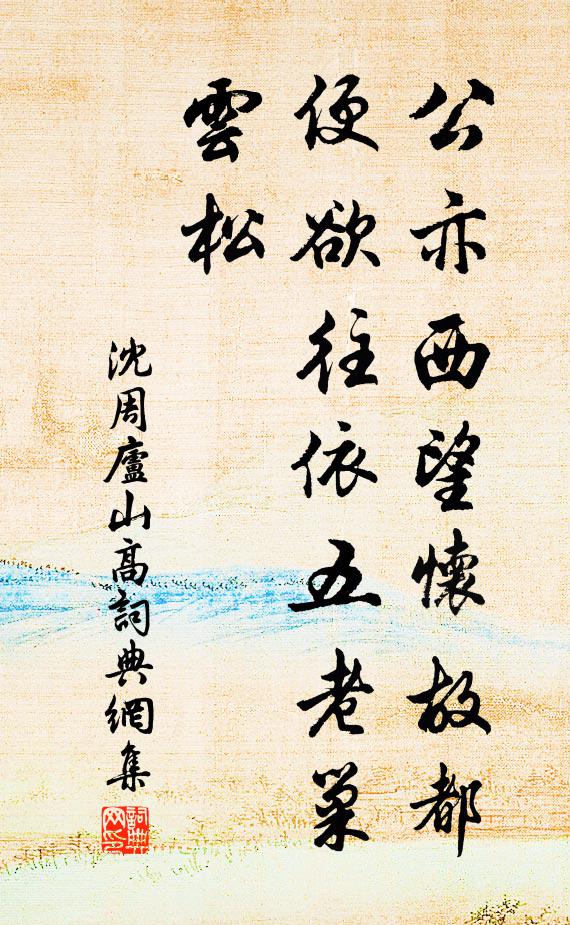 公亦西望懷故都
便欲往依五老巢
雲松
沈周廬山高詞典網集
詞典
网印